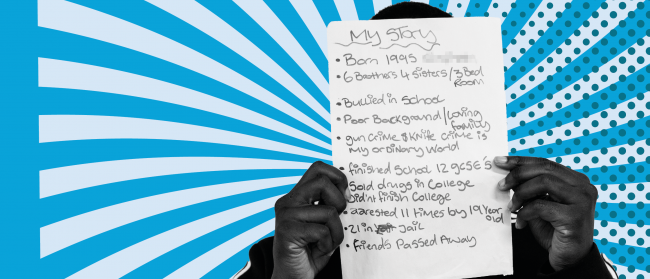 My Story
• Born 1995
• 6 Brothers 4 Sisters / 3 Bed
Room
• Bullied in School
• Poor Background / Loving
family
• gun crime & knife crime is
My ordinary world
• finished School 12 gcse's
• Sold drugs in College
• Didnt finish College
• aarested 11 times by 19 Year
old
• 21 in Jail
• Friends Passed Away